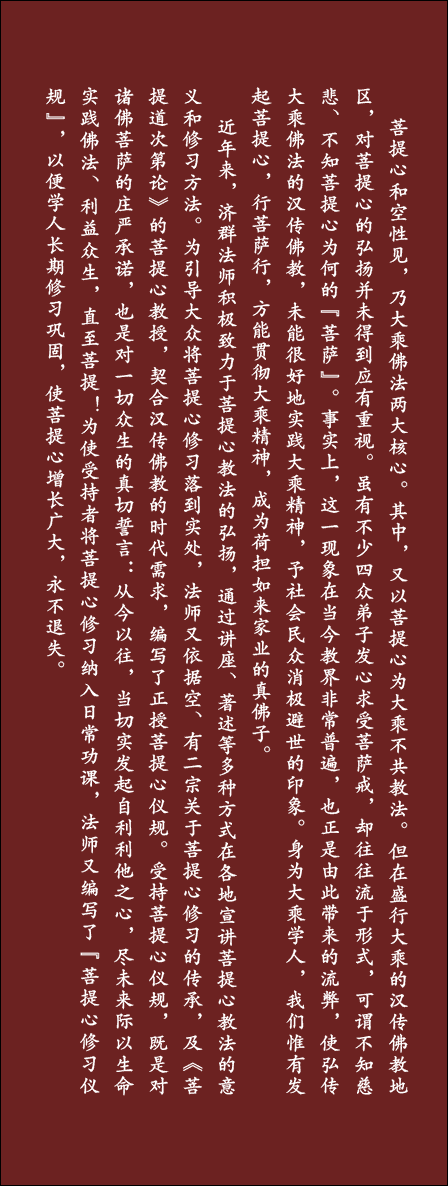 菩提心和空性见，乃大乘佛法两大核心。其中，又以菩提心为大乘不共教法。但在盛行大乘的汉传佛教地
区，对菩提心的弘扬并未得到应有重视。虽有不少四众弟子发心求受菩萨戒，却往往流于形式，可谓不知慈
悲、不知菩提心为何的『菩萨』。事实上，这一现象在当今教界非常普遍，也正是由此带来的流弊，使弘传
大乘佛法的汉传佛教，未能很好地实践大乘精神，予社会民众消极避世的印象。身为大乘学人，我们惟有发
起菩提心，行菩萨行，方能贯彻大乘精神，成为荷担如来家业的真佛子。
近年来，济群法师积极致力于菩提心教法的弘扬，通过讲座、著述等多种方式在各地宣讲菩提心教法的意
义和修习方法。为引导大众将菩提心修习落到实处，法师又依据空、有二宗关于菩提心修习的传承，及《菩
提道次第论》的菩提心教授，契合汉传佛教的时代需求，编写了正授菩提心仪规。受持菩提心仪规，既是对
诸佛菩萨的庄严承诺，也是对一切众生的真切誓言：从今以往，当切实发起自利利他之心，尽未来际以生命
实践佛法、利益众生，直至菩提！为使受持者将菩提心修习纳入日常功课，法师又编写了『菩提心修习仪
规』，以便学人长期修习巩固，使菩提心增长广大，永不退失。